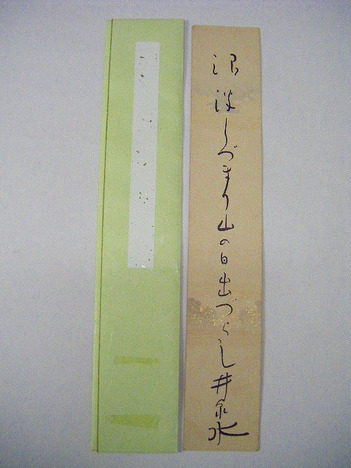 浪淡しづまり山の日出づらし井泉水